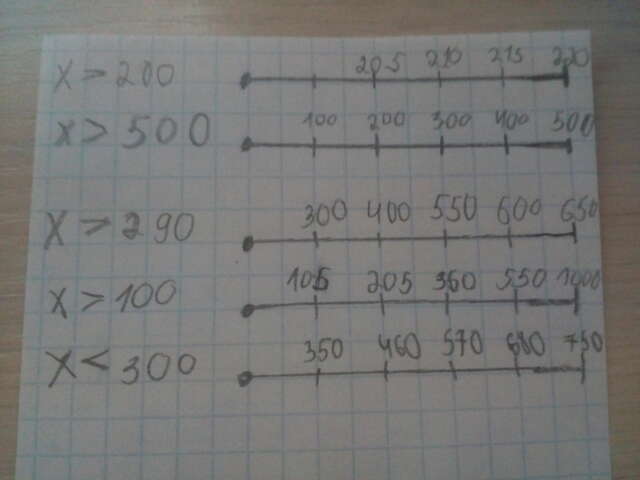 x > 200 205 210 215 220
x > 500 100 200 300 400 500
x > 290 300 400 550 600 650
x > 100 105 205 360 550 1000
x < 300 350 460 570 680 750